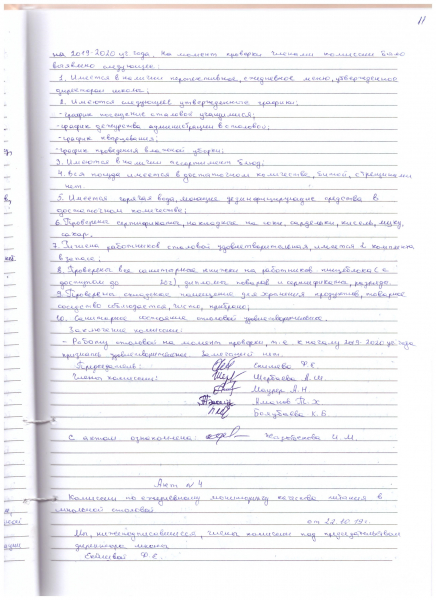 11
на 2019-2020 уч. года. На момент проверки членами комиссии было
выявлено следующее:
1. Имеется в наличии перспективное, ежедневное меню, утвержденное
директором школы;
2. Имеются следующие утвержденные графики;
-график посещение столовой учащимися;
-график дежурства администрации в столовой;
-график кварцевания;
-график проведения влажной уборки;
3. Имеются в наличии блюд;
4. Вся посуда имеется в достаточном количестве, битой, с трещинами
нет.
5. Имеется горячая вода, моющие дезинфицирующие средства в
достаточном количестве;
6. Проверены сертификаты, накладные на соки, сардельки, кисель, муку,
сахар.
7. работников столовой удовлетворительная, имеется в комплекте
в запасе;
8. Проверены все санитарные книжки на работников пищеблока (с
доступом до), дипломы поваров и сертификаты, разряды.
9. Проверены складское помещение для хранения продуктов, товарное
соседство соблюдается, чисто, прибрано;
10. Санитарное состояние столовой удовлетворительное.
Заключение комиссии:
- Работу столовой на момент проверки, т.е. к началу 2019-2020 уч. года
признать удовлетворительное. Замечаний нет.
Председатель: Ф.Е.
Члены комиссии: Щербаева А.М.
Маурер А.Н.
Иманов Т.Х.
К.Б.
С актом ознакомлена: И.М.
Акт №4
Комиссии по ежедневному мониторингу качества питания в
школьной столовой
от 22.10.19г.
Мы, нижеподписавшиеся, члены комиссии под председательством
директора школы
Ф.Е.